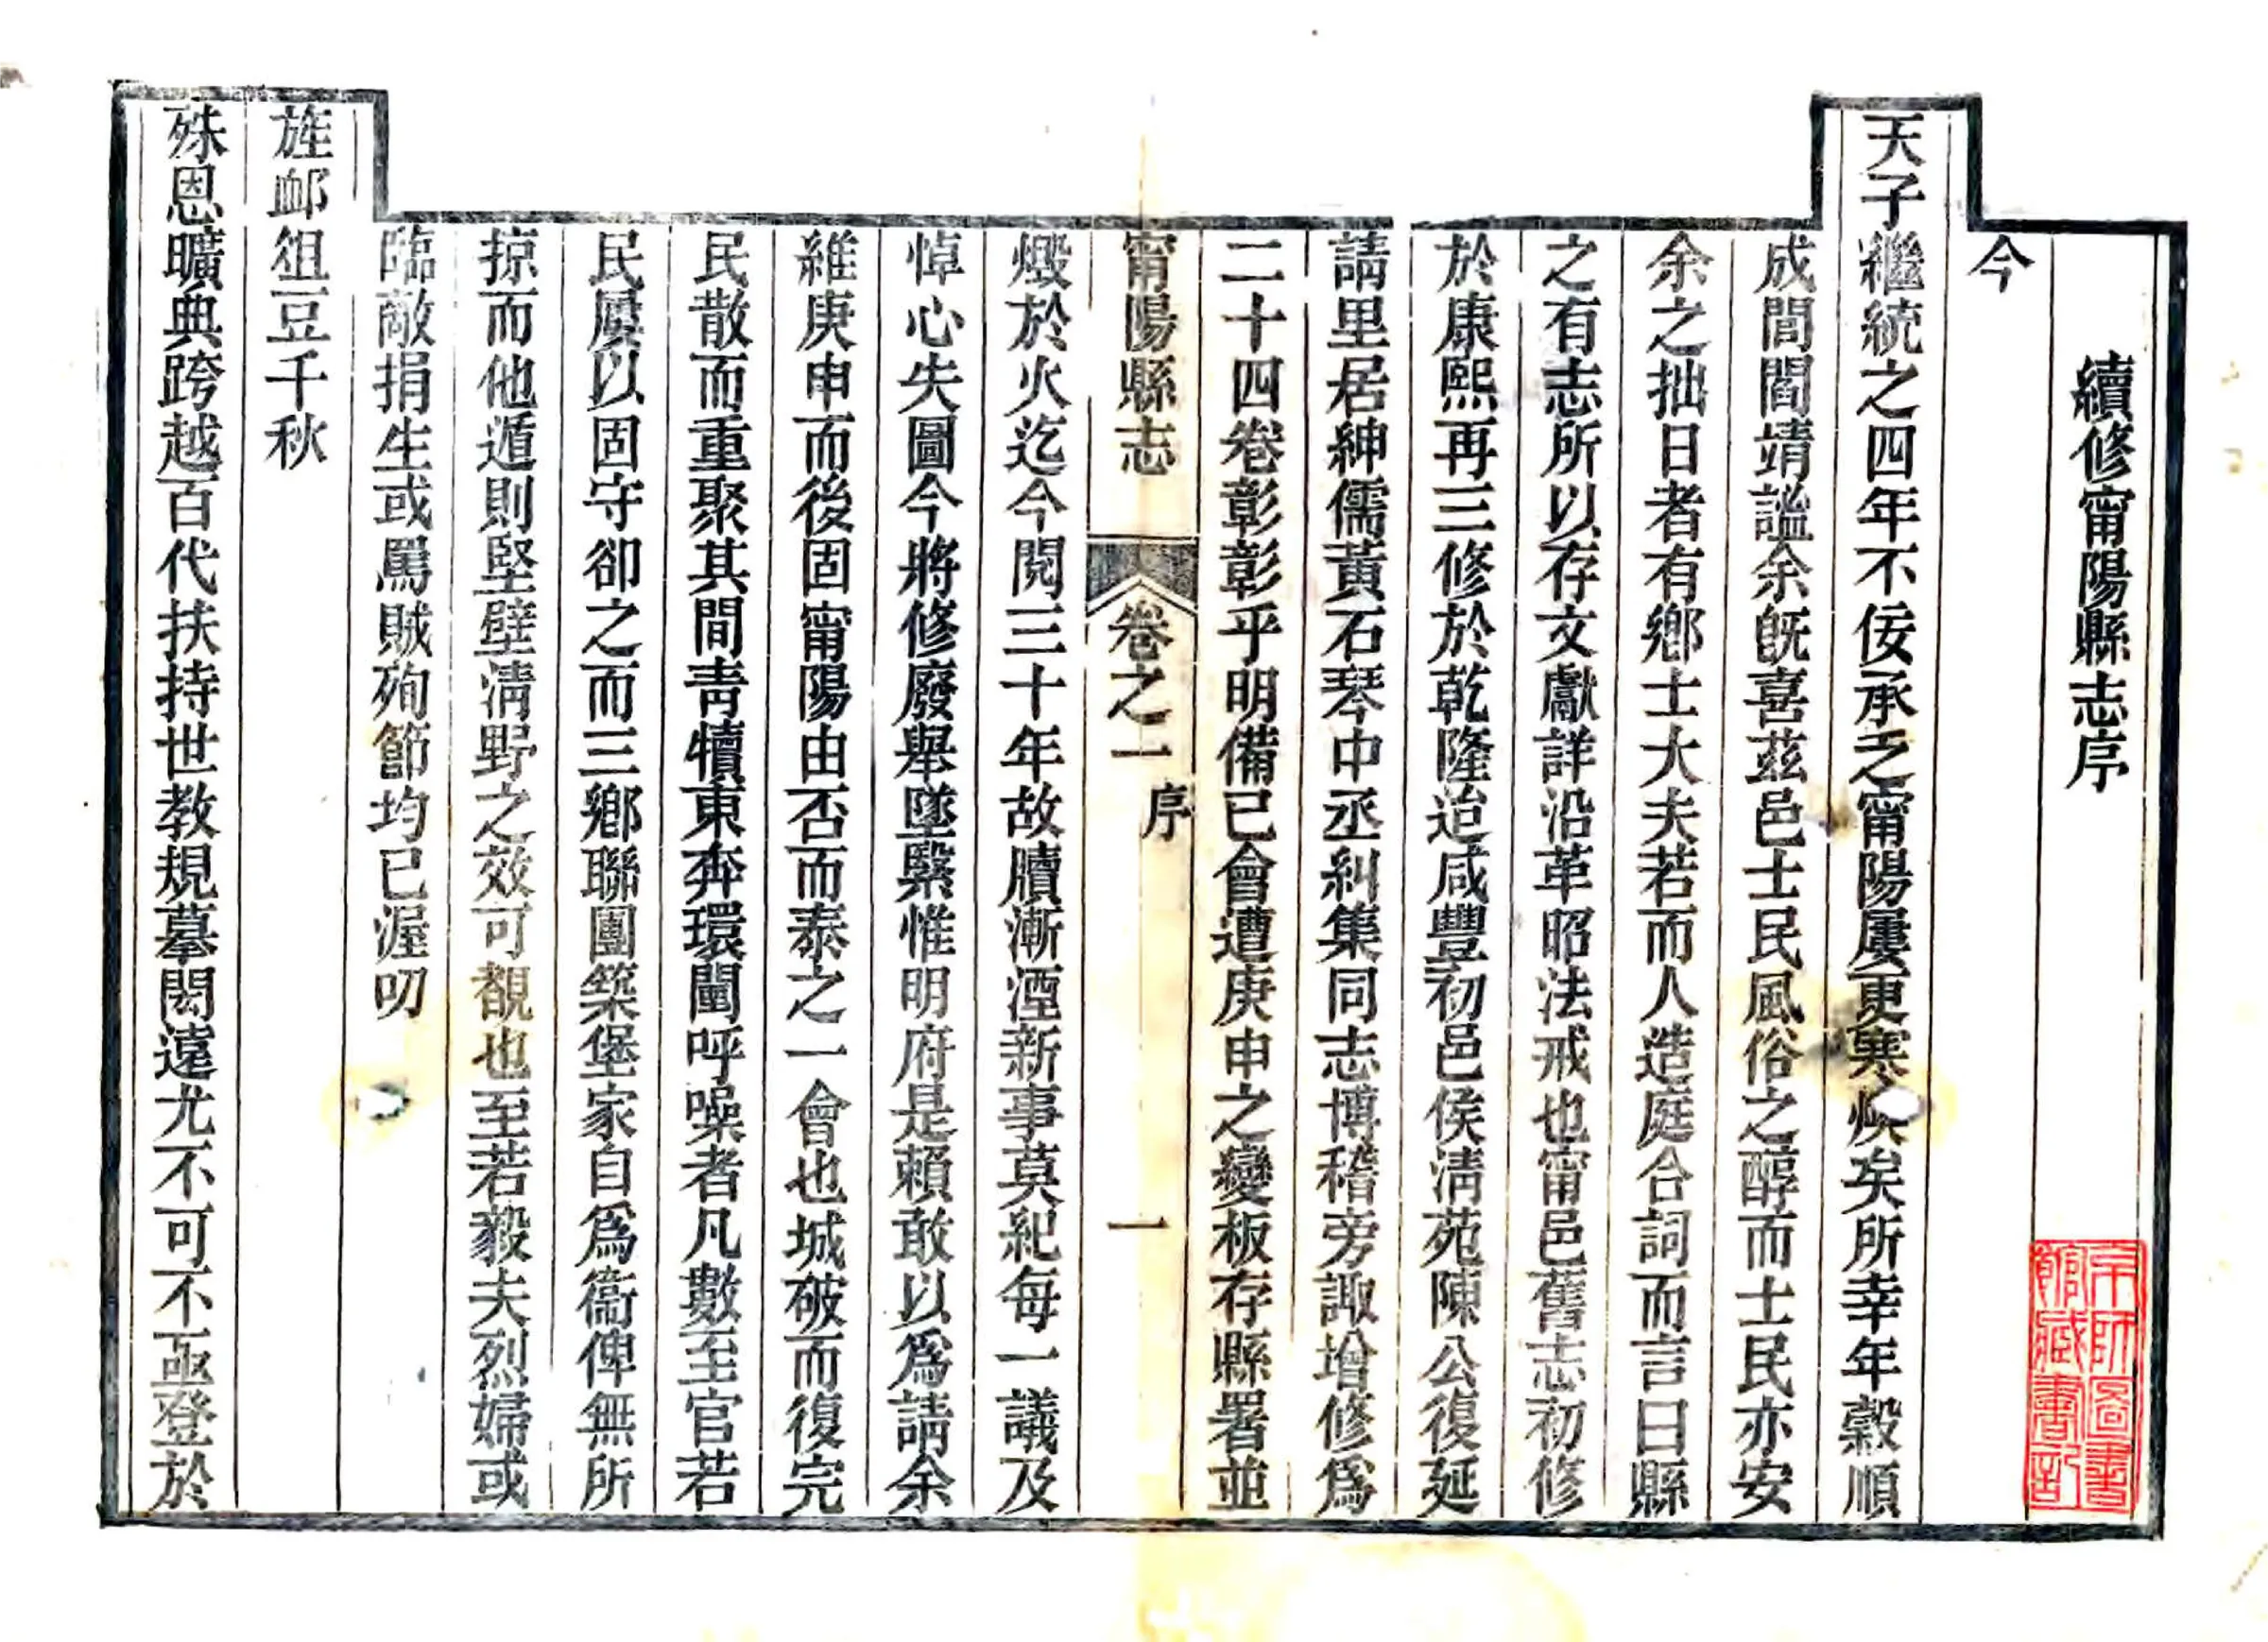 續修甯陽縣志序
今
天子繼統之四年不佞承乏甯陽屢更寒燠矣所幸年穀順
成閭閻靖謐余旣喜茲邑士民風俗之醇而士民亦安
余之拙日者有鄉士大夫若而人造庭合詞而言曰縣
之有志所以存文獻詳沿革昭法戒也甯邑舊志初修
於康熙再三修於乾隆迨咸豐初邑侯淸苑陳公復延
請里居紳儒黃石琴中丞糾集同志博稽旁諏增修爲
二十四卷彰彰乎明備已會遭庚申之變板存縣署並
甯陽縣志
卷之一
序
一
燬於火迄今閱三十年故牘漸湮新事莫紀每一議及
悼心失圖今將修廢舉墜繄惟明府是賴敢以爲請余
維庚申而後固甯陽由否而泰之一會也城破而復完
民散而重聚其間靑犢東奔環闉呼噪者凡數至官若
民屢以固守卻之而三鄉聯團築堡家自爲衞俾無所
掠而他遁則堅壁淸野之效可覩也至若毅夫烈婦或
臨敵捐生或罵賊殉節均已渥叨
旌卹俎豆千秋
殊恩曠典跨越百代扶持世教規摹閎遠尤不可不亟登於
京師圖書
館藏書記